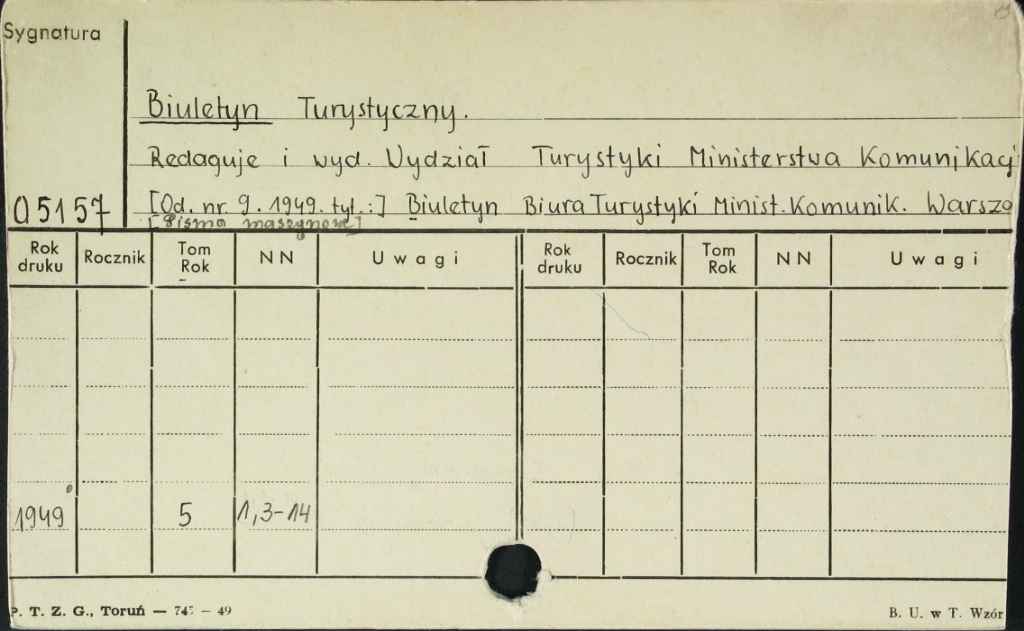 Sygnatura
Biuletyn Turystyczny.
Redaguje i wyd. Wydział Turystyki Ministerstwa Komunikacj
05157 [Od. nr. 9. 1949. tyt.:] Biuletyn Biura Turystyki Minist. Komunik. Warsza
[Pismo maszynowe]
Rok druku Rocznik Tom Rok NN Uwagi Rok druku Rocznik Tom Rok NN Uwagi
1949 5 1,3-14
P. T. Z. G., Toruń — 745 – 49 B. U. w T. Wzór